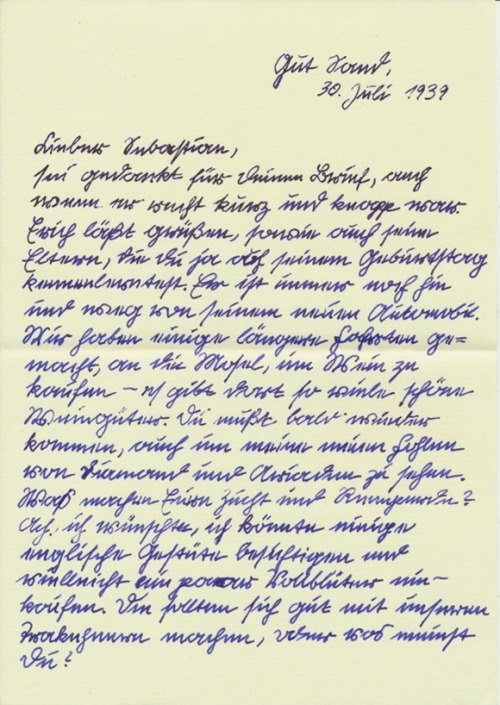 Gut Sand,
30. Juli 1939
Lieber Sebastian,
sei gedankt für Deinen Brief, auch
wenn er recht kurz und knapp war.
Erich läßt grüßen, sowie auch seine
Eltern, die Du ja auf seinem Geburtstag
kennenlerntest. Er ist immer noch hin
und weg von seinem neuen Automobil.
Wir haben einige längere Fahrten ge=
macht, an die Mosel, um Wein zu
kaufen – es gibt dort so viele schöne
Weingüter. Du mußt bald wieder
kommen, auch um meine neuen Fohlen
von Diamand und Ariadne zu sehen.
Was machen Eure Zucht und Rennpferde?
Ach, ich wünschte, ich könnte einige
englische Gestüte besichtigen und
vielleicht ein paar Vollblüter ein-
kaufen. Die sollten sich gut mit unseren
Trakehnern machen, oder was meinst
Du?